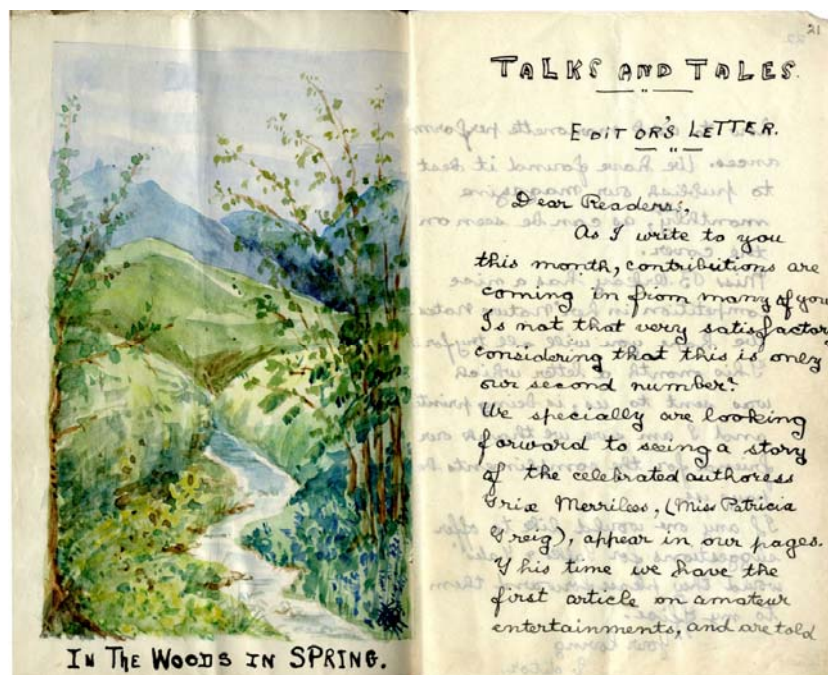 IN THE WOODS IN SPRING.
21
TALKS AND TALES.
EDITOR'S LETTER.
Dear Readers,
As I write to you
this month, contributions are
coming in from many of you
Is not that very satisfactory
considering that this is only
our second number?
We specially are looking
forward to seeing a story
of the celebrated authoress
Trix Merrilees, (Miss Patricia
Greig), appear in our pages.
This time we have the
first article on amateur
entertainments, and are told